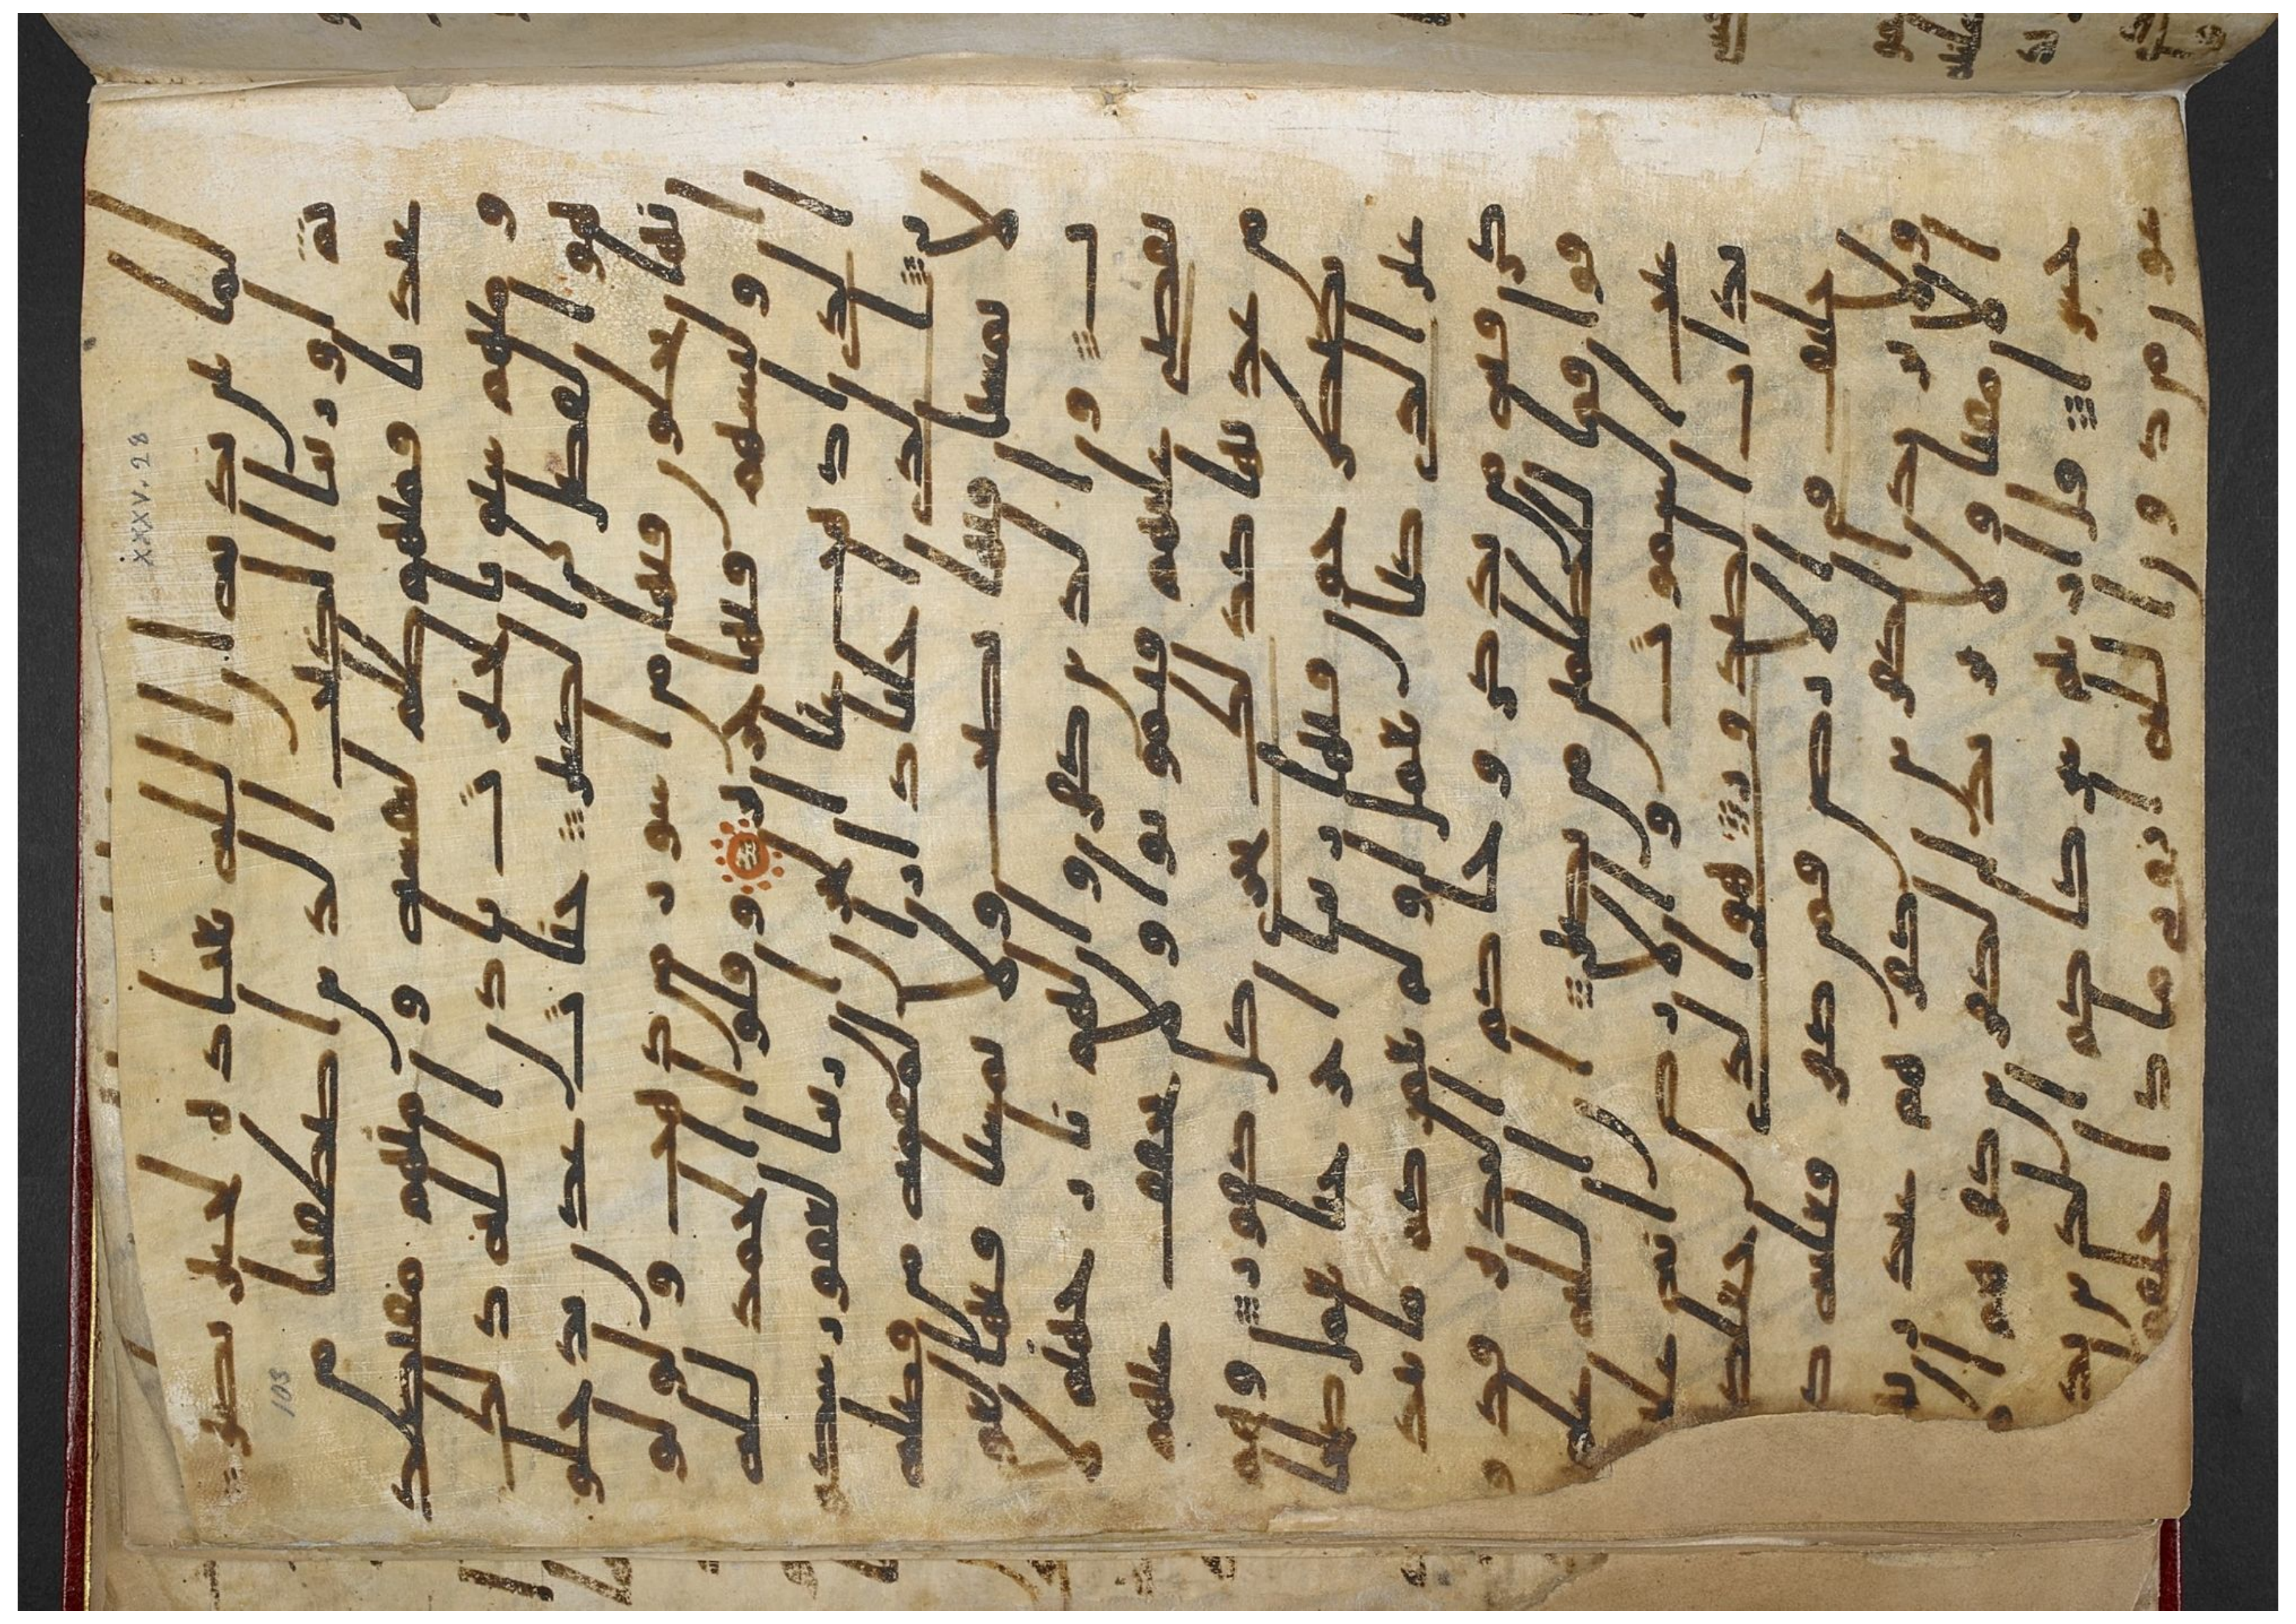 XXXV. 28
103
لما بين يديه ان الله بعباده لخبير بصير
ثم اورثنا الكتب الذين اصطفينا من
عبادنا فمنهم ظالم لنفسه ومنهم مقتصد
ومنهم سابق بالخيرت باذن الله ذلك
هو الفضل الكبير جنت عدن يدخلو
نها يحلون فيها من اساور من ذهب ولولو
ا ولباسهم فيها حرير وقالوا الحمد لله
الذي اذهب عنا الحزن ان ربنا لغفور شكو
ر الذي احلنا دار المقمه من فضله
لا يمسنا فيها نصب ولا يمسنا فيها لغو
ب والذين كفروا لهم نار جهنم لا
يقضى عليهم فيموتوا ولا يخفف عنهم
من عذابها كذلك نجزي كل كفور وهم
يصطرخون فيها ربنا اخرجنا نعمل صلحا
غير الذي كنا نعمل اولم نعمركم ما يتذ
كر فيه من تذكر وجاكم النذير فذو
قوا فما للظلمين من نصير ان الله علم
غيب السموت والارض انه عليم
بذات الصدور هو الذي جعلكم
خلئف في الارض فمن كفر فعليه ك
فره ولا يزيد الكفرين كفرهم عند ربهم
الا مقتا ولا يزيد الكفرين كفرهم الا
خسرا قل اريتم شركاكم الذين تد
عون من دون الله اروني ماذا خلقوا